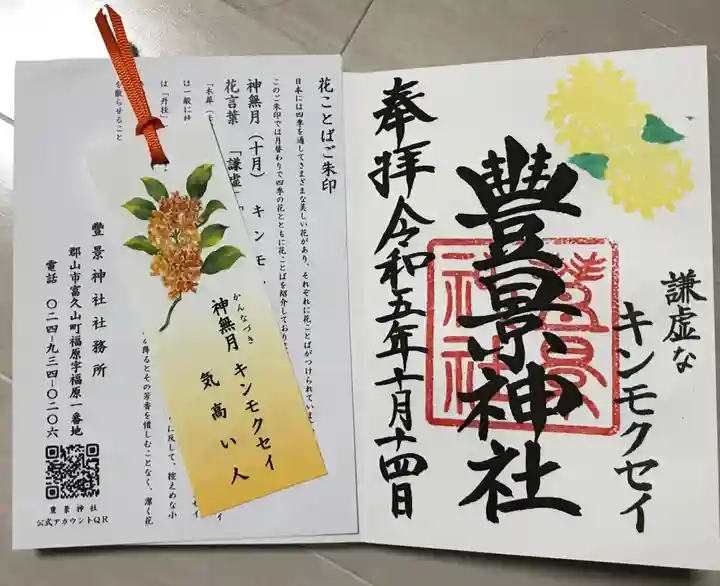 謙虚な
キンモクセイ
豐景神社
奉拝令和五年十月十四日
豐景
神社
花ことばご朱印
日本には四季を通してさまざまな美しい花があり、それぞれに花ことばがつけられていま
このご朱印では月替わりで四季の花とともに花ことばを紹介しており
神無月(十月) キンモ
花言葉 「謙虚」
「木犀
は一般に
は「丹桂」
を散らせること
に反して、控えめな小
降るとその芳香を惜しむことなく、潔く花
かんなづき
神無月 キンモクセイ
気高い人
豐景神社社務所
郡山市富久山町福原字福原一番地
電話 〇二四-九三四-〇二〇六
豐景神社
公式アカウントQR